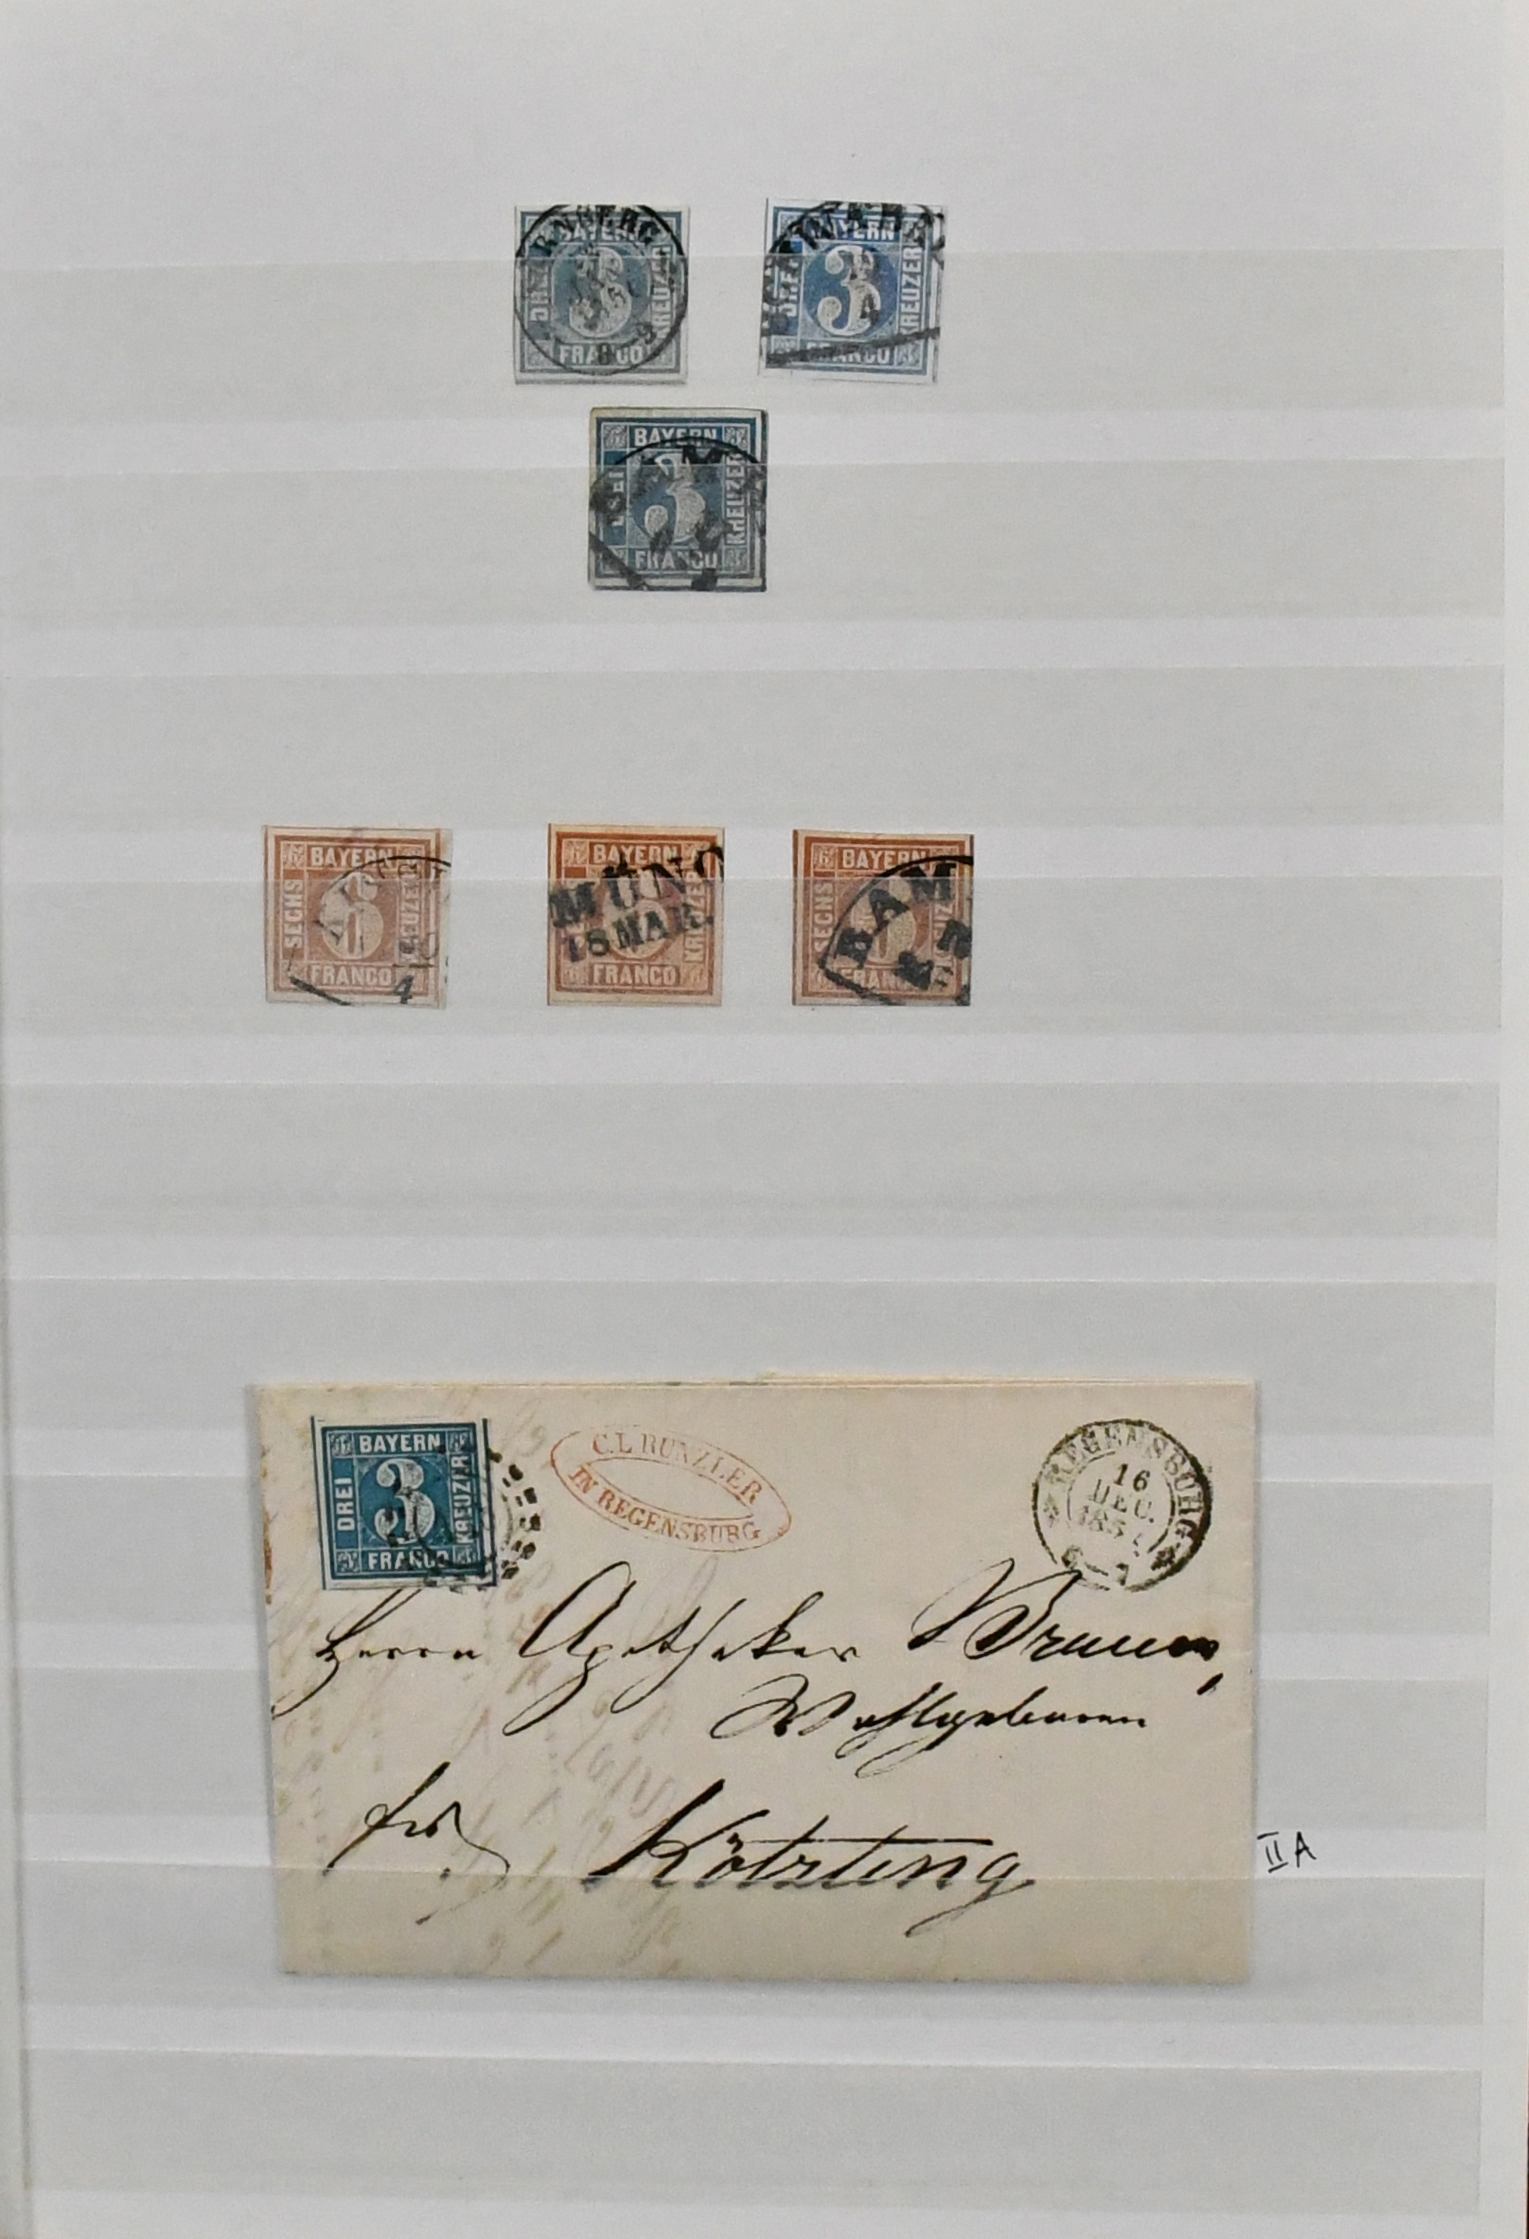 BAYERN
KREUZER
FRANCO
BAYERN
3
KREUZER
FRANCO
4
BAYERN
3
KREUZER
FRANCO
BAYERN
SECHS
6
KREUZER
FRANCO
4
BAYERN
MÜNC
18 MAR.
KREUZER
FRANCO
BAYERN
SECHS
BAM
FRANCO
BAYERN
DREI
3
KREUZER
FRANCO
C. L. RUNZLER
IN REGENSBURG
REGENSBURG
16
DEC.
Herrn Apotheker Braun,
Wohlgeboren
Kötzting
II A